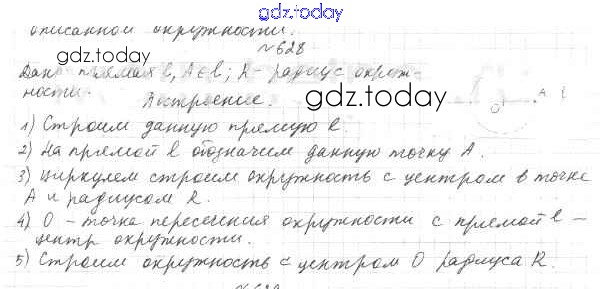 gdz.today
описанной окружности.
№628
gdz.today
Дано прямая l, A∈l; R - радиус окруж-
ности.
Построение.
gdz.today
O A l
1) Строим данную прямую l.
2) На прямой l обозначим данную точку A.
3) Циркулем строим окружность с центром в точке
A и радиусом R.
4) O - точка пересечения окружности с прямой l -
центр окружности.
5) Строим окружность с центром O радиуса R.
gdz.today